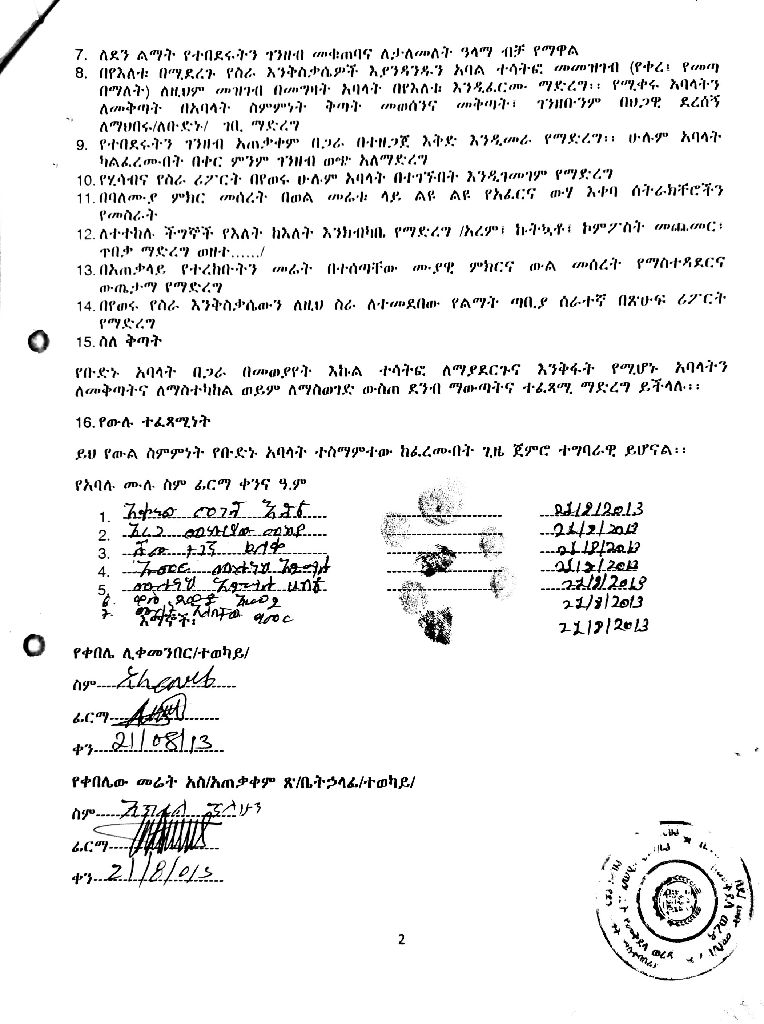 7. ለደን ልማት የተበደሩትን ገንዘብ መቁጠባና ለታለመለት ዓላማ ብቻ የማዋል
8. በየእለቱ በሚደረጉ የስራ እንቅስቃሴዎች እያንዳንዱን አባል ተሳትፎ መመዝገብ (የቀረ፣ የመጣ
በማለት) ለዚህም መዝገብ በመግዛት አባላት በየእለቱ እንዲፈርሙ ማድረግ፡፡ የሚቀሩ አባላትን
ለመቅጣት በአባላት ስምምነት ቅጣት መወሰንና መቅጣት፣ ገንዘቡንም በህጋዊ ደረሰኝ
ለማህበሩ/ለቡድኑ/ ገቢ ማድረግ
9. የተበደሩትን ገንዘብ አጠቃቀም በጋራ በተዘጋጀ እቅድ እንዲመራ የማድረግ፡፡ ሁሉም አባላት
ካልፈረሙበት በቀር ምንም ገንዘብ ወጭ አለማድረግ
10. የሂሳብና የስራ ሪፖርት በየወሩ ሁሉም አባላት በተገኙበት እንዲገመገም የማድረግ
11. በባለሙያ ምክር መሰረት በወል መሬቱ ላይ ልዩ ልዩ የአፈርና ውሃ እቀባ ስትራክቸሮችን
የመስራት
12. ለተተከሉ ችግኞች የእለት ከእለት እንክብካቤ የማድረግ /አረም፣ ኩትኳቶ፣ ኮምፖስት መጨመር፣
ጥበቃ ማድረግ ወዘተ……/
13. በአጠቃላይ የተረከቡትን መሬት በተሰጣቸው ሙያዊ ምክርና ውል መሰረት የማስተዳደርና
ውጤታማ የማድረግ
14. በየወሩ የስራ እንቅስቃሴውን ለዚህ ስራ ለተመደበው የልማት ጣቢያ ሰራተኛ በጽሁፍ ሪፖርት
የማድረግ
15. ስለ ቅጣት
የቡድኑ አባላት በጋራ በመወያየት እኩል ተሳትፎ ለማያደርጉና እንቅፋት የሚሆኑ አባላትን
ለመቅጣትና ለማስተካከል ወይም ለማስወገድ ውስጠ ደንብ ማውጣትና ተፈጻሚ ማድረግ ይችላሉ፡፡
16. የውሉ ተፈጻሚነት
ይህ የውል ስምምነት የቡድኑ አባላት ተስማምተው ከፈረሙበት ጊዜ ጀምሮ ተግባራዊ ይሆናል፡፡
የአባሉ ሙሉ ስም ፊርማ ቀንና ዓ.ም
1. 21/8/2013
2. 21/8/2013
3. 21/8/2013
4. 21/8/2013
5. 21/8/2013
6. 21/8/2013
7. 21/8/2013
እማኞች፡
የቀበሌ ሊቀመንበር/ተወካይ/
ስም
ፊርማ
ቀን 21/08/13
የቀበሌው መሬት አስ/አጠቃቀም ጽ/ቤትኃላፊ/ተወካይ/
ስም
ፊርማ
ቀን 21/8/013
2